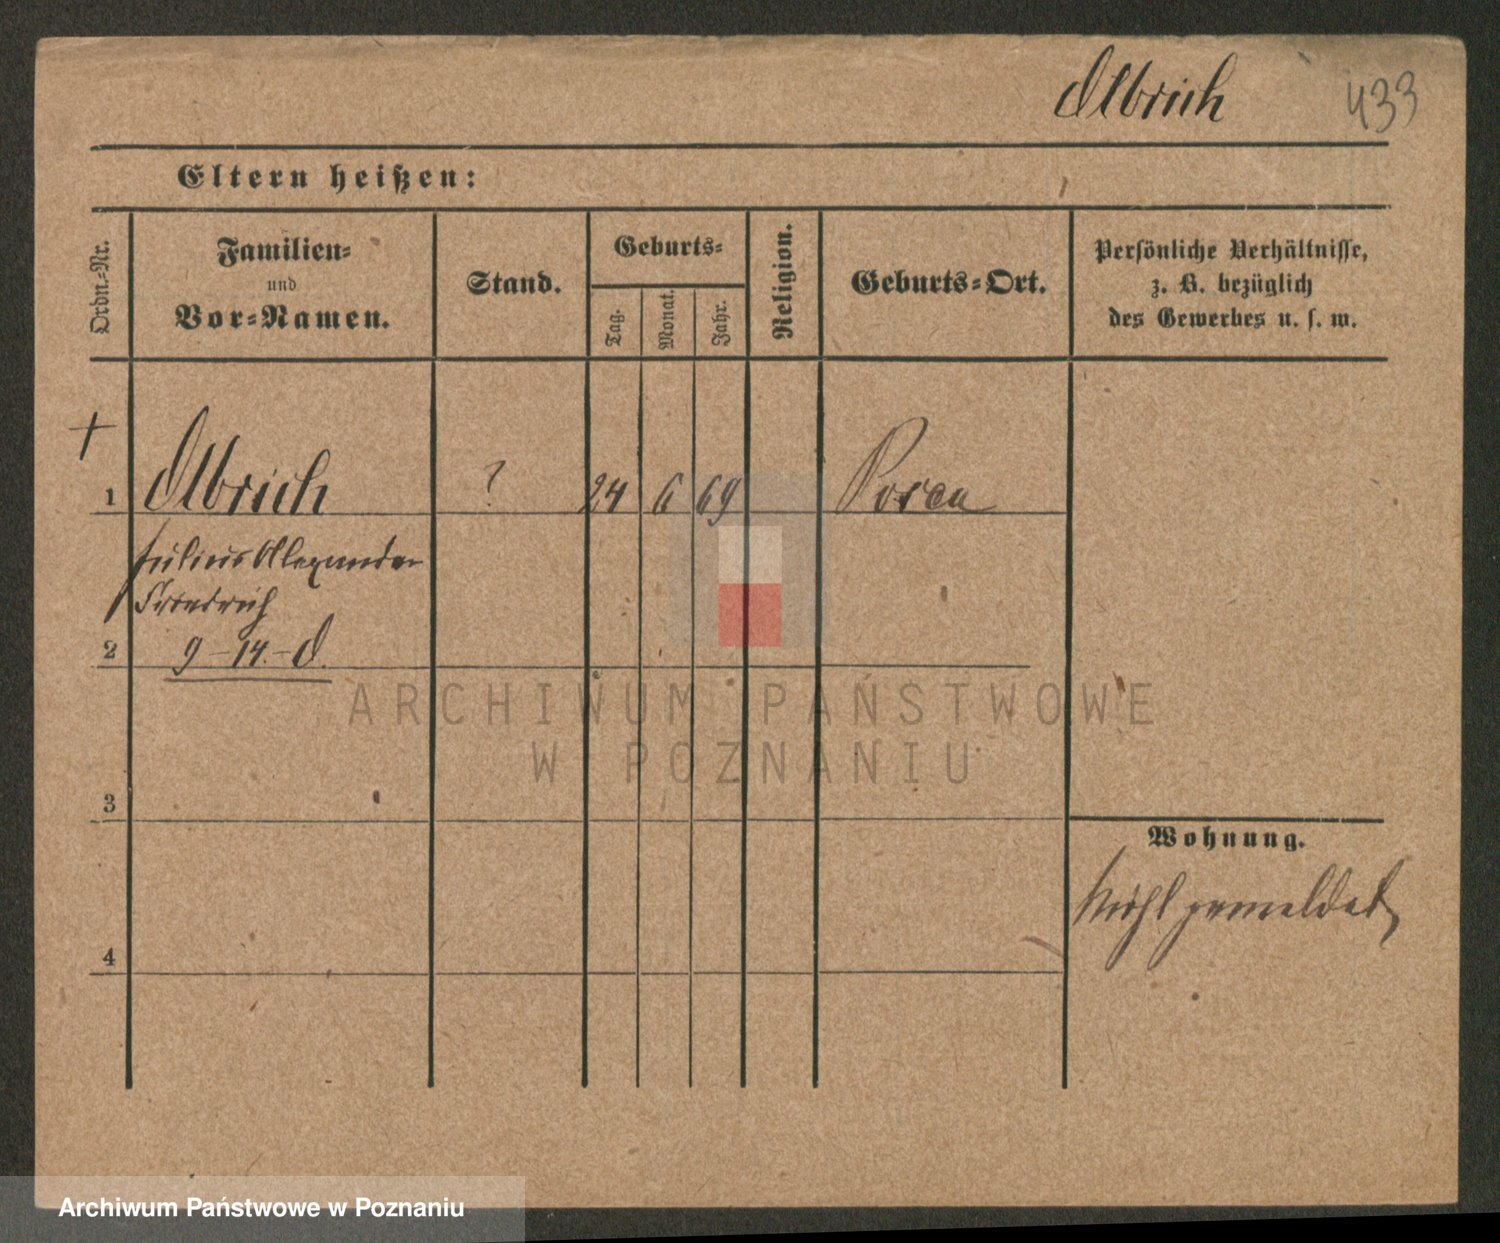 Olbrich 433
Eltern heißen:
Ordn.-Nr.
Familien-
und
Vor-Namen.
Stand.
Geburts-
Tag.
Monat.
Jahr.
Religion.
Geburts-Ort.
Persönliche Verhältnisse,
z. B. bezüglich
des Gewerbes u. s. w.
1 Olbrich ? 24 6 69
Julius Alexander
Friedrich
2 9-14.-O.
ARCHIWUM PAŃSTWOWE
W POZNANIU
3
Wohnung.
Nicht gemeldet
4
Archiwum Państwowe w Poznaniu